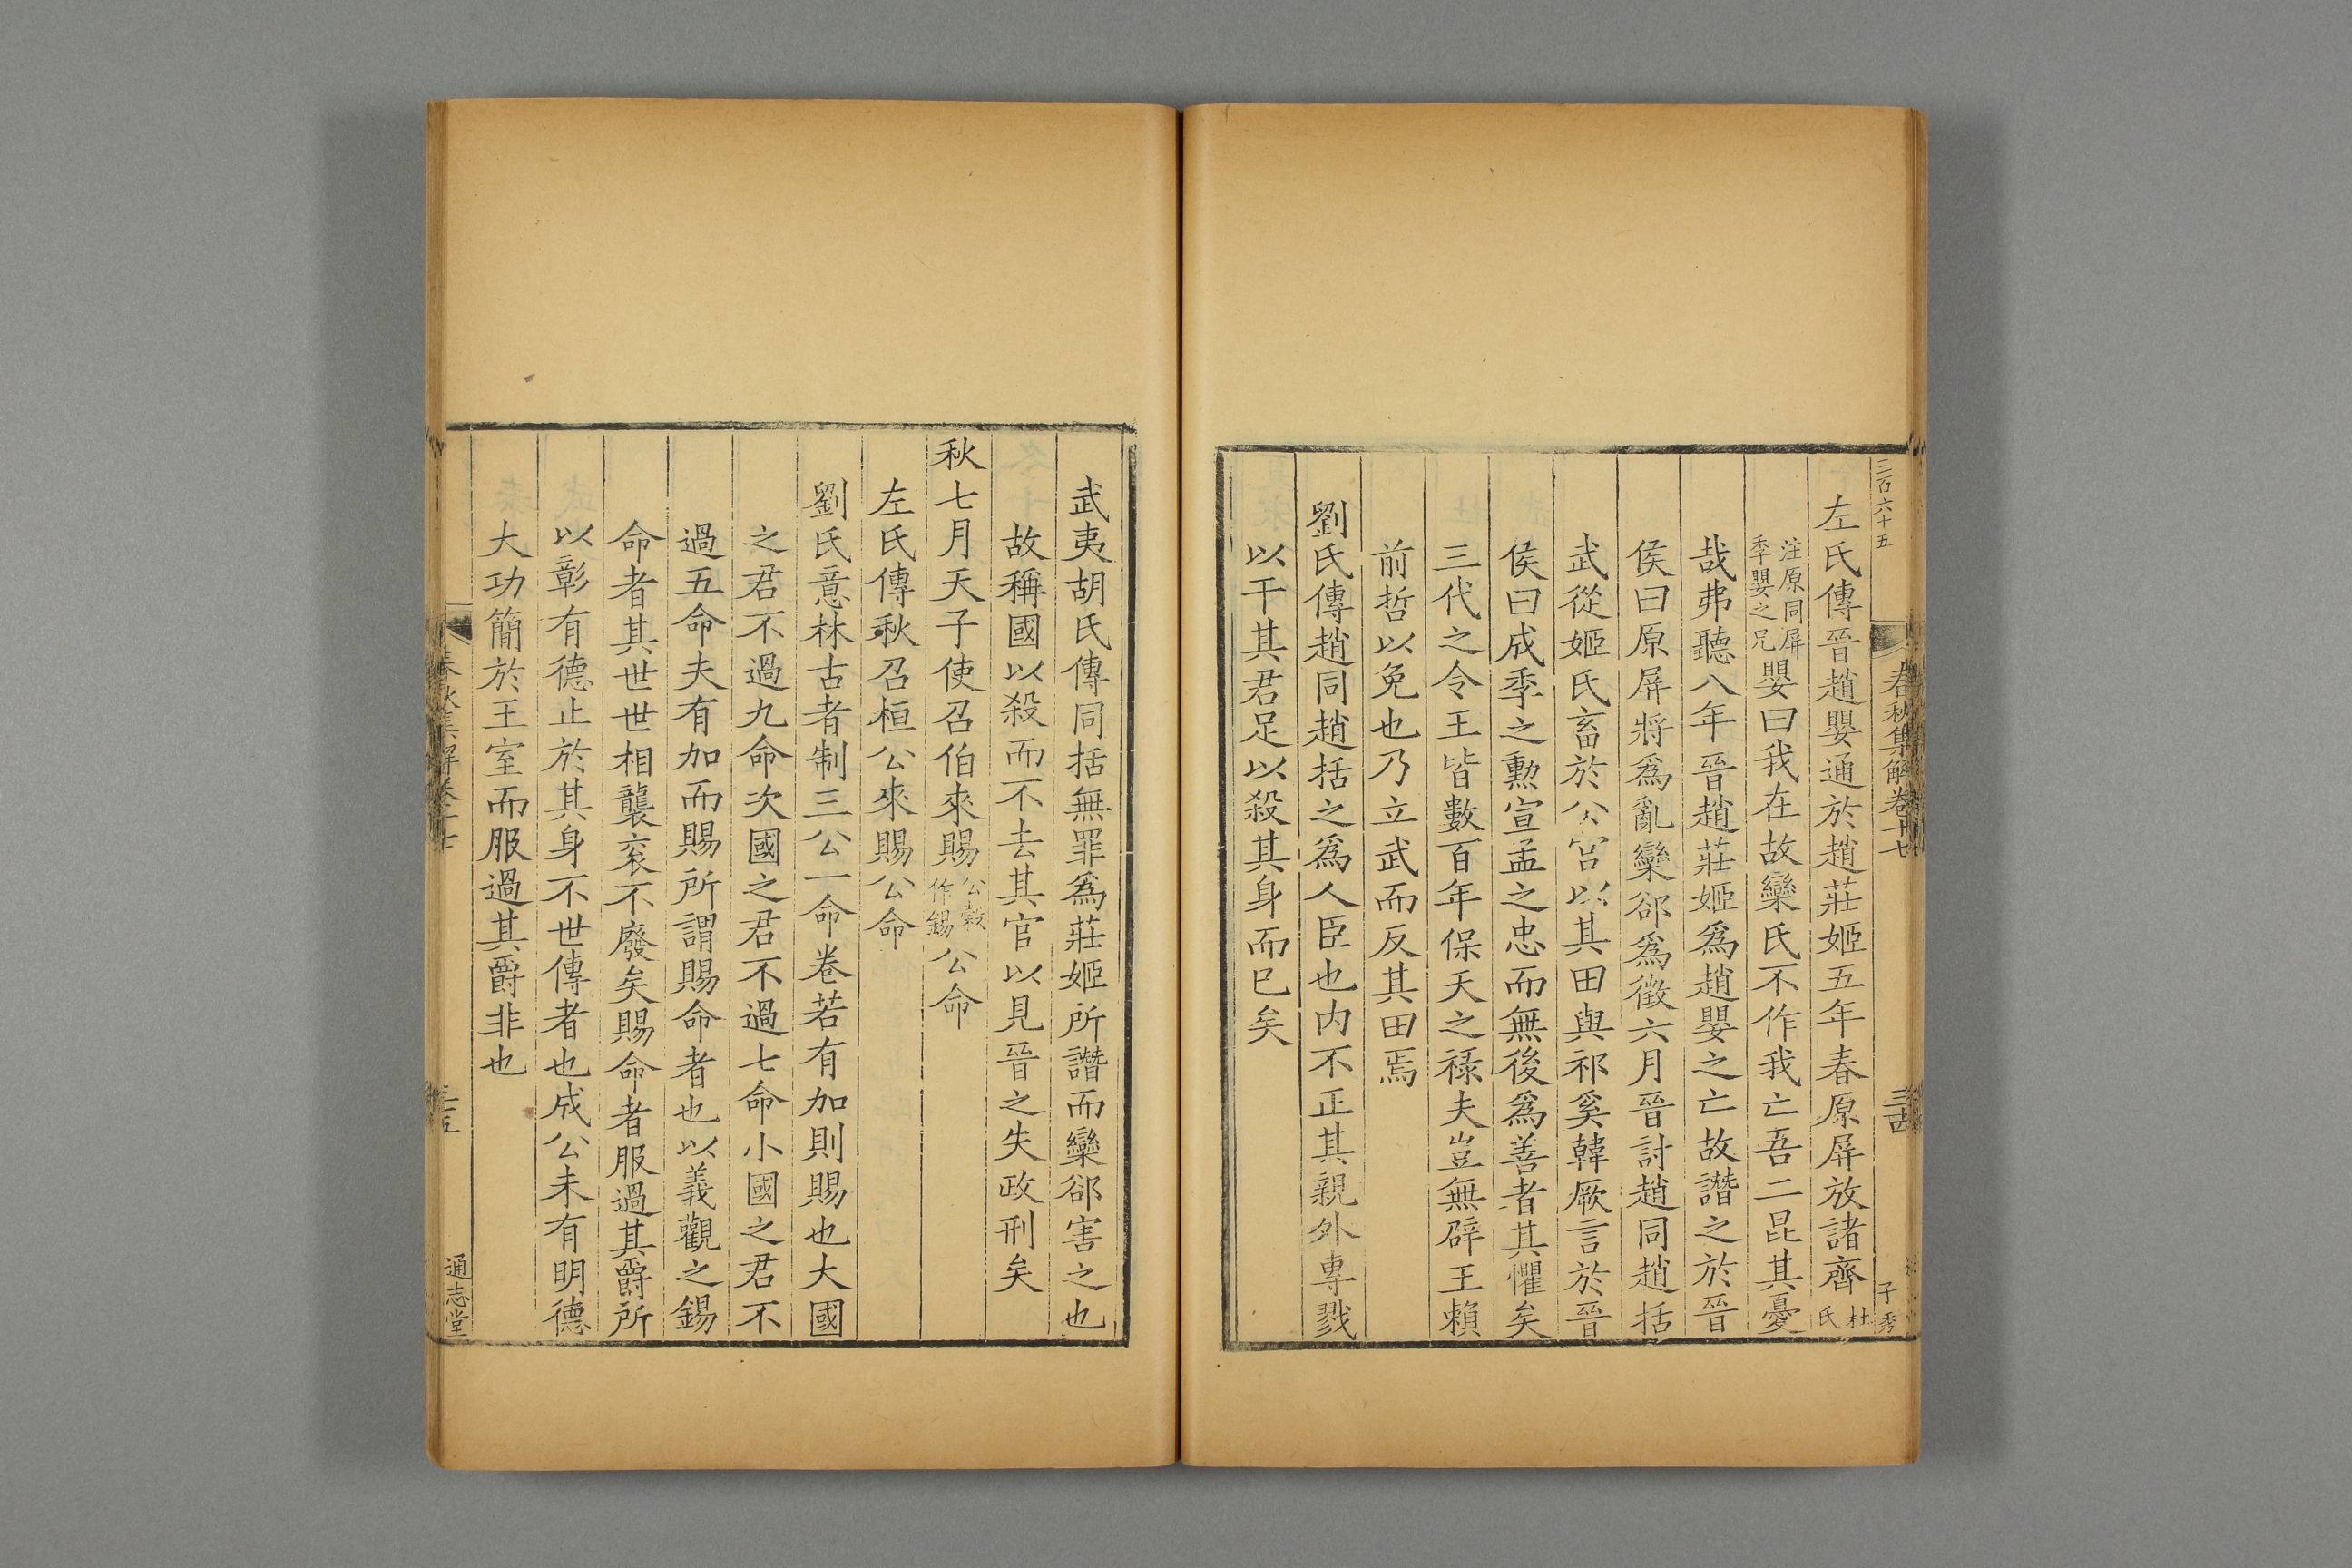 三百六十五
春秋集解卷十七
三古
子秀
左氏傳晉趙嬰通於趙莊姬五年春原屏放諸齊杜氏
注原同屏季嬰之兄嬰曰我在故欒氏不作我亡吾二昆其憂
哉弗聽八年晉趙莊姬爲趙嬰之亡故譖之於晉
侯曰原屏將爲亂欒郤爲徵六月晉討趙同趙括
武從姬氏畜於公宮以其田與祁奚韓厥言於晉
侯曰成季之勲宣孟之忠而無後爲善者其懼矣
三代之令王皆數百年保天之祿夫豈無辟王賴
前哲以免也乃立武而反其田焉
劉氏傳趙同趙括之爲人臣也内不正其親外專戮
以干其君足以殺其身而已矣
武夷胡氏傳同括無罪爲莊姬所譖而欒郤害之也
故稱國以殺而不去其官以見晉之失政刑矣
秋七月天子使召伯來賜公穀作錫公命
左氏傳秋召桓公來賜公命
劉氏意林古者制三公一命卷若有加則賜也大國
之君不過九命次國之君不過七命小國之君不
過五命夫有加而賜所謂賜命者也以義觀之錫
命者其世世相襲衮不廢矣賜命者服過其爵所
以彰有德止於其身不世傳者也成公未有明德
大功簡於王室而服過其爵非也
春秋集解卷十七
通志堂